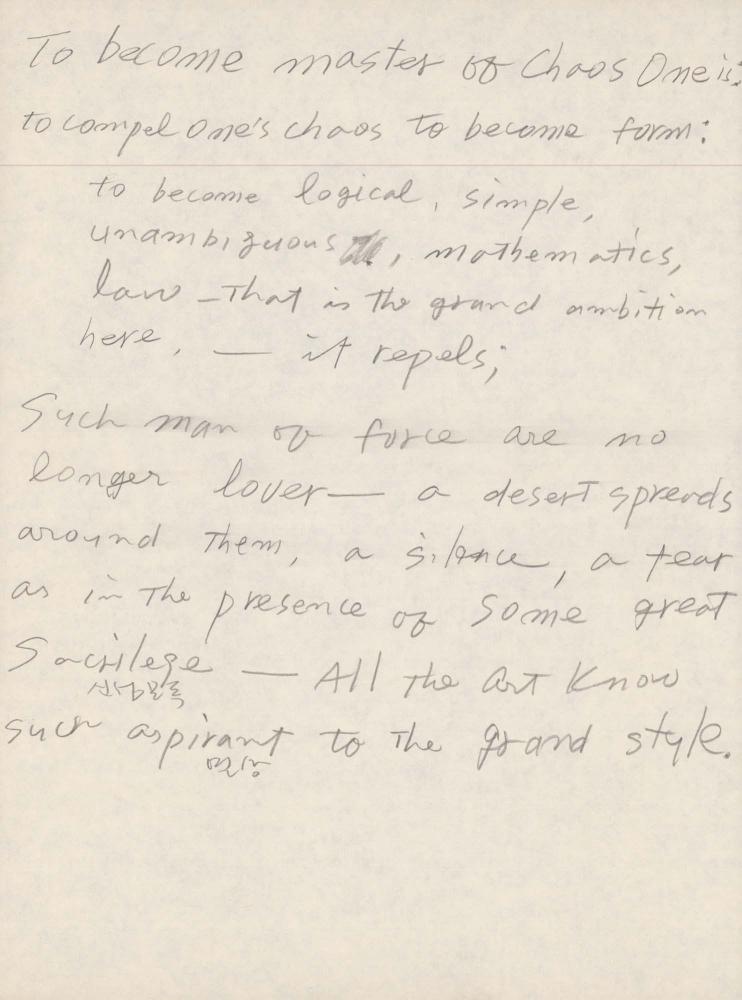 To become master of Chaos One is:
to compel one's chaos to become form:
to become logical, simple,
unambiguous, mathematics,
law – That is the grand ambition
here. — it repels;
Such man of force are no
longer lover — a desert spreads
around them, a silence, a fear
as in the presence of some great
Sacrilege — All the art know
신성모독
such aspirant to the grand style.
열망